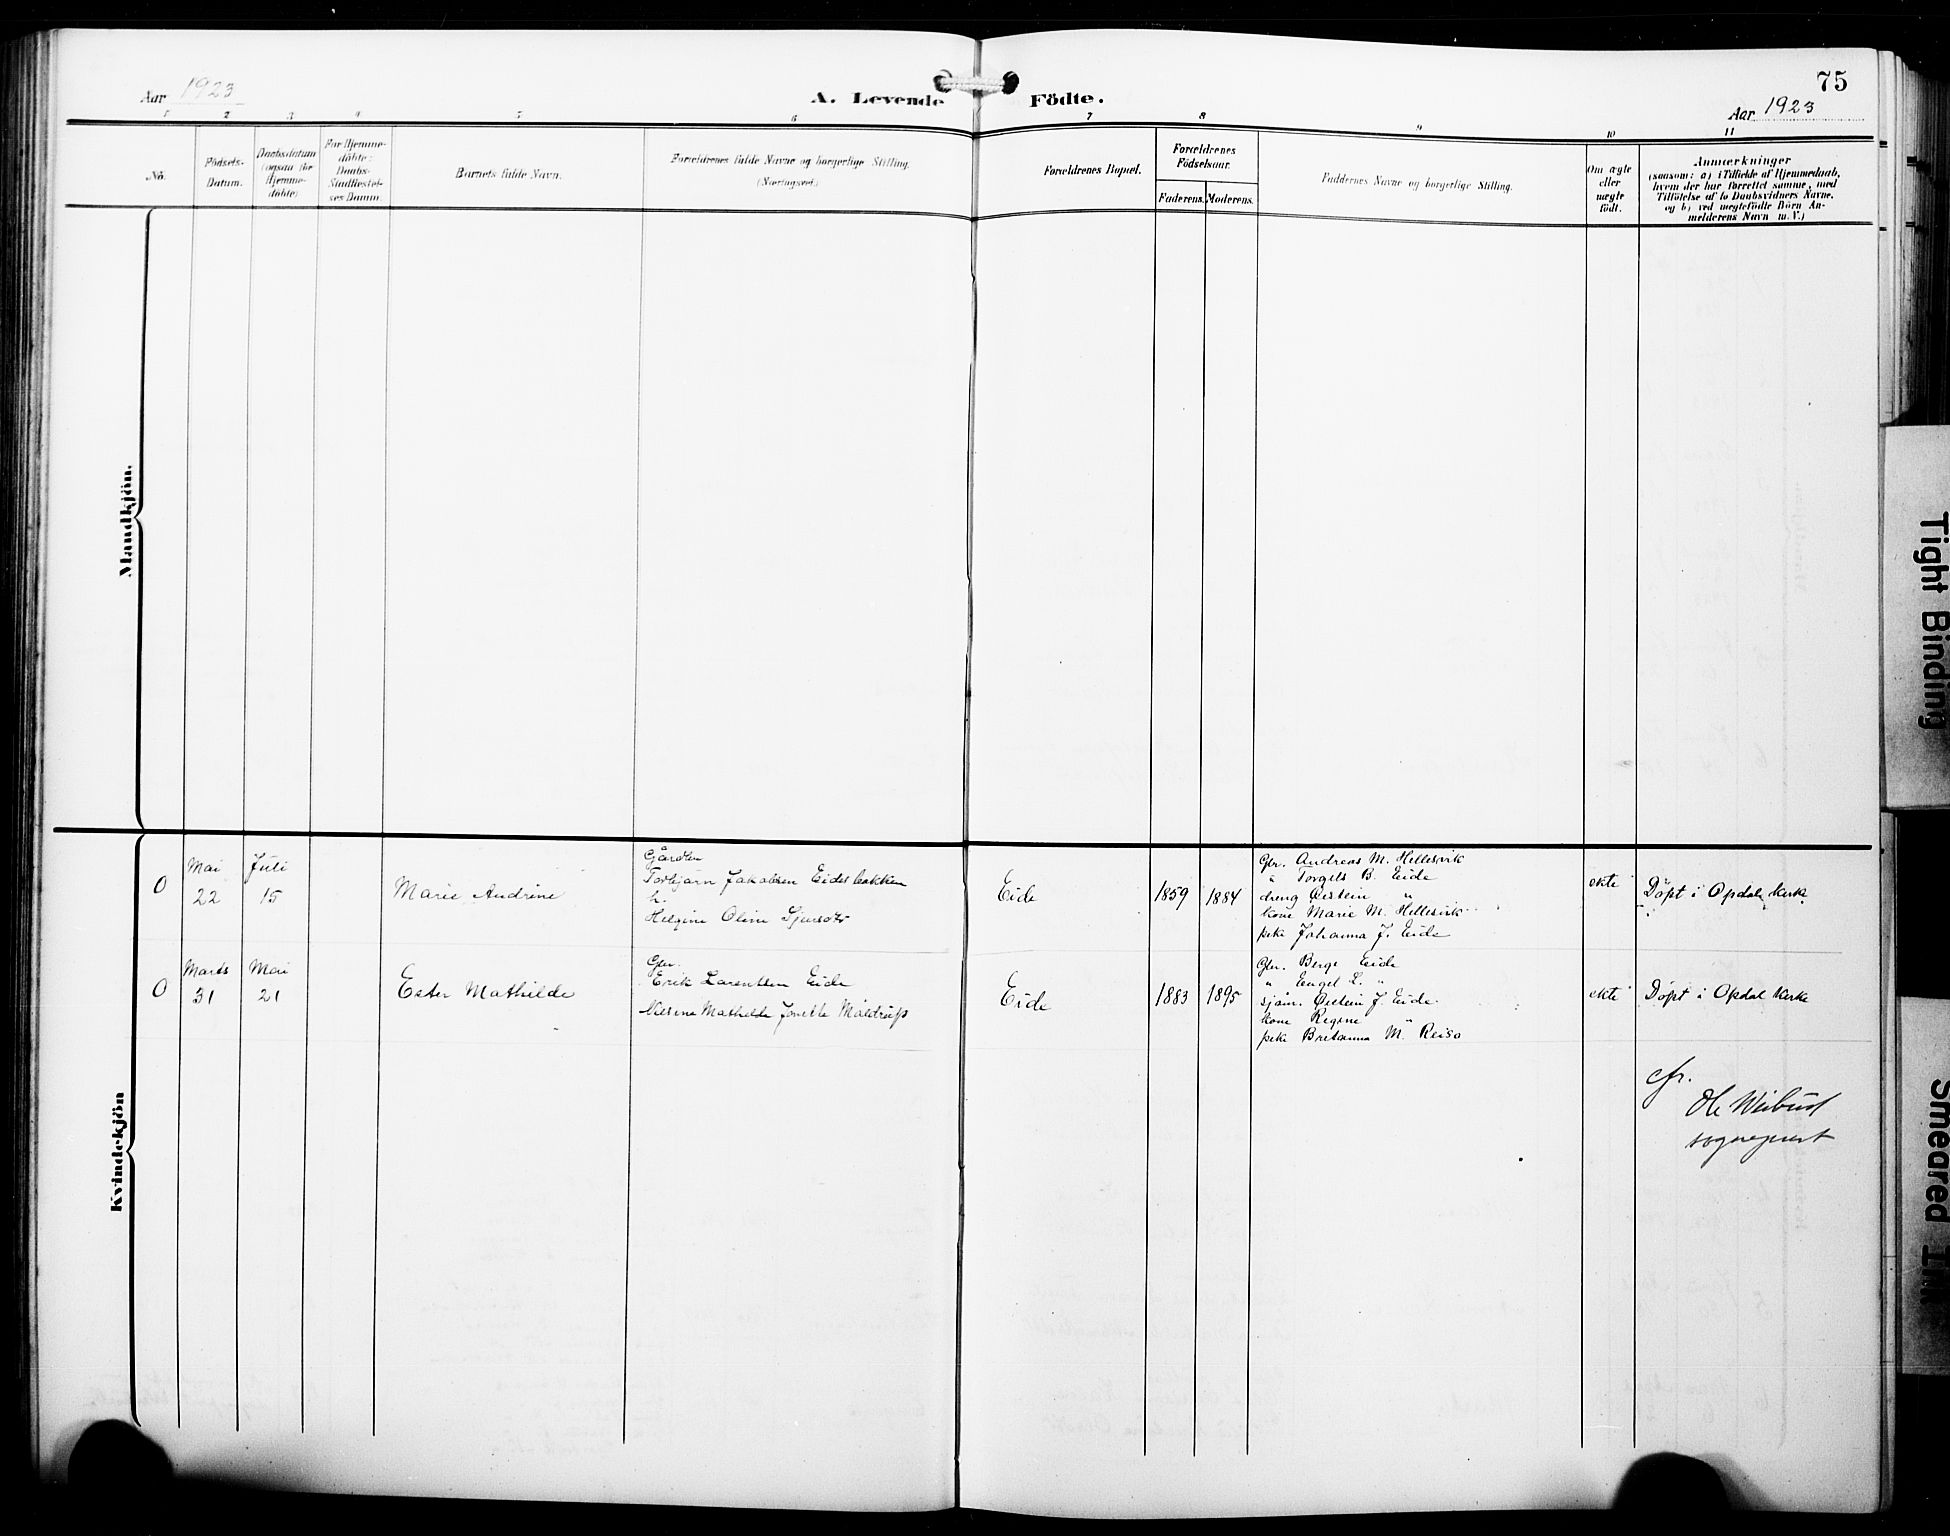 Aar 1923
A. Levende Födte.
75
Aar 1923
1 2 3 4 5 6 7 8 9 10 11
No.
Födsels-
Datum.
Daabsdatum
(ogsaa for
Hjemme-
döbte)
For Hjemme-
döbte:
Daabs-
Stadfæstel-
ses Datum.
Barnets fulde Navn.
Forældrenes fulde Navne og borgerlige Stilling.
(Næringsvei.)
Forældrenes Bopæl.
Forældrenes
Födselsaar.
Faderens. Moderens.
Faddernes Navne og borgerlige Stilling.
Om ægte
eller
uægte
födt.
Anmærkninger
(saasom: a) i Tilfælde af Hjemmedaab,
hvem der har forrettet samme, med
Tilföielse af to Daabsvidners Navne,
og b) ved uægtefödte Börn An-
melderens Navn m. V.)
Mandkjön.
Kvindekjön
0
Mai
22
Juli
15
Marie Andrine
Torbjørn Jakobsen Eidesbakken
h.
Helgine Oline Sjursdtr
Eide
1859
1884
Gbr. Andreas M. Hellesvik
" Torgels B. Eide
dreng Øistein "
kone Marie M. Hellesvik
pike Johanna J. Eide
ekte
Døpt i Opdal kerk
0
Marts
31
Mai
21
Ester Mathilde
Gbr.
Erik Larentsen Eide
Nilsine Mathilde Jonette Måldrup
Eide
1883
1895
Gbr. Berge Eide
" Engel L. "
sjøm. Øistein J. Eide
kone Regine "
pike Britanna M. Reisa
ekte
Døpt i Opdal kerke
cfr.
Ole Weibust
sogneprest
Tight Binding
Smeared Ink